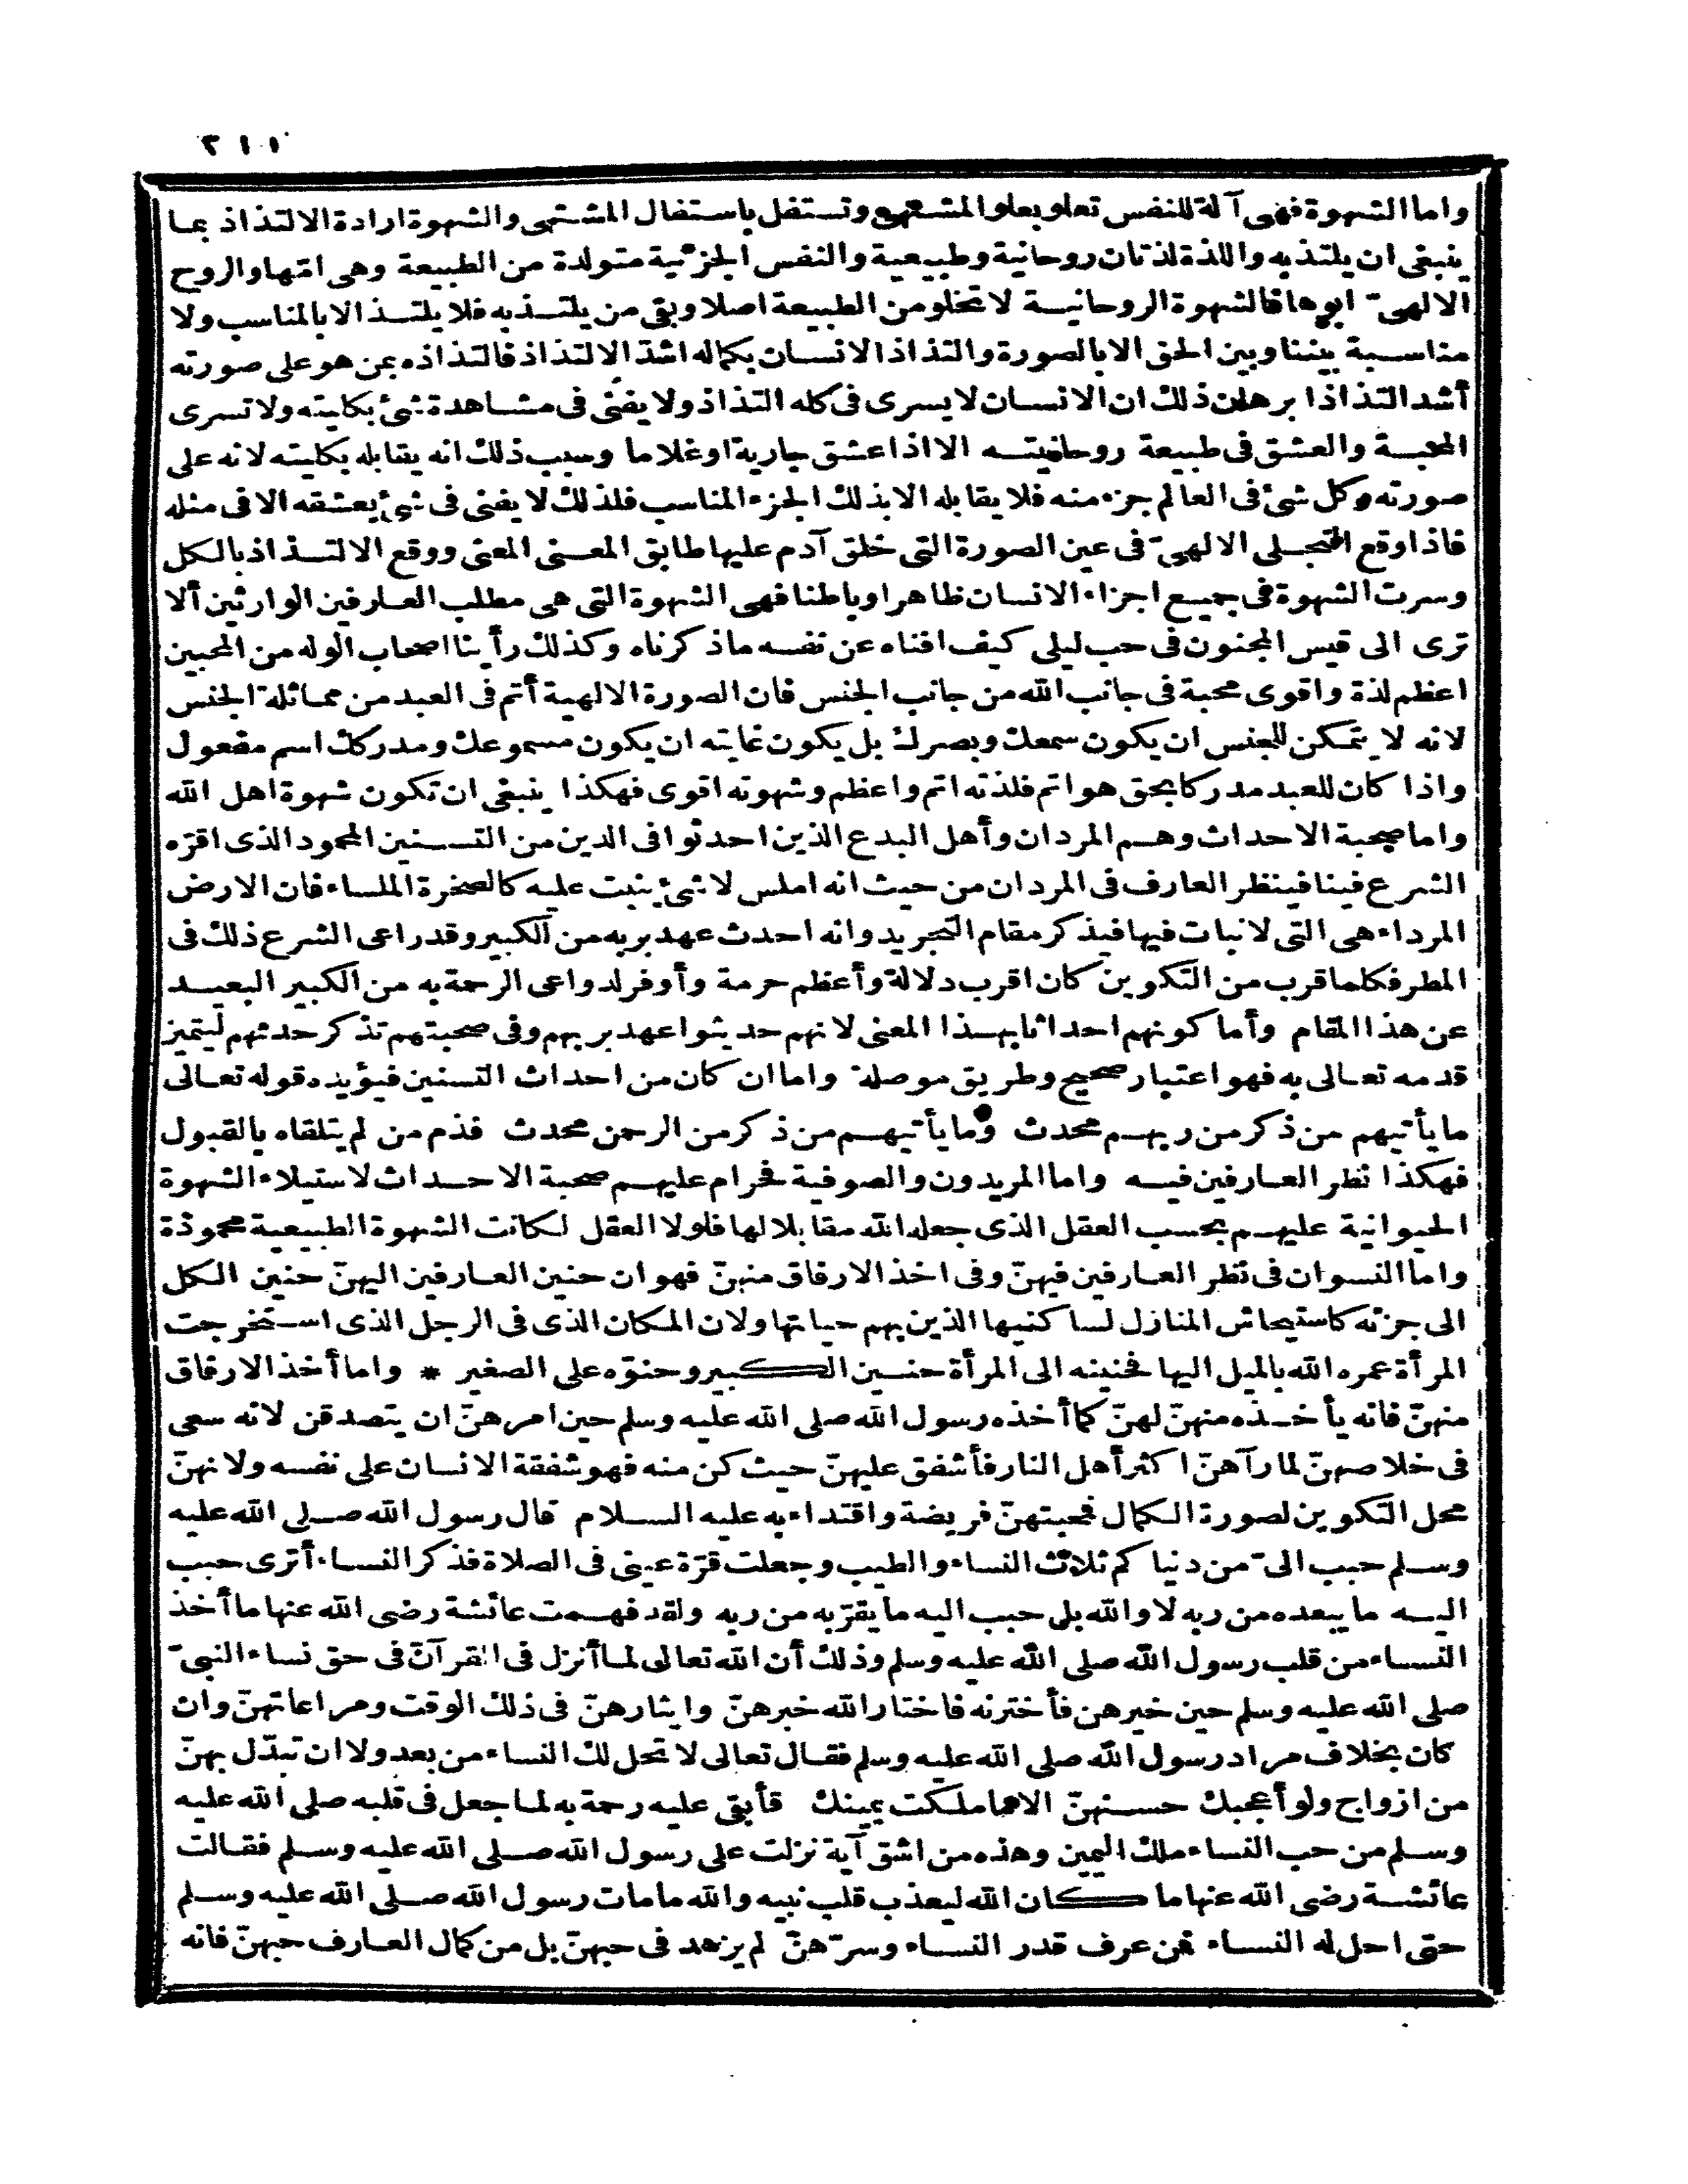 ٢١١
واما الشهوة فهى آلة للنفس تعلو بعلو المشتهى وتستفل باستفال المشتهى والشهوة ارادة الالتذاذ بما
ينبغى ان يلتذ به واللذة لذتان روحانية وطبيعية والنفس الجزئية متولدة من الطبيعة وهى امّها والروح
الالهىّ ابوها فالشهوة الروحانيــة لا تخلو من الطبيعة اصلا وبقى من يلتــذ به فلا يلتــذ الا بالمناسب ولا
مناسـبة بيننا وبين الحق الا بالصورة والتذاذ الانسان بكماله اشدّ الالتذاذ فالتذاذه بمن هو على صورته
أشد التذاذا برهان ذلك ان الانسان لا يسرى فى كله التذاذ ولا يفنى فى مشاهدة شئ بكليته ولا تسرى
المحبــة والعشق فى طبيعة روحانيتــه الا اذا عشق جارية او غلاما وسبب ذلك انه يقابله بكليته لانه على
صورته وكل شئ فى العالم جزء منه فلا يقابله الا بذلك الجزء المناسب فلذلك لا يفنى فى شئ يعشقه الا فى مثله
فاذا وقع التجــلى الالهىّ فى عين الصورة التى خلق آدم عليها طابق المعــنى المعنى ووقع الالتــذاذ بالكل
وسرت الشهوة فى جميـع اجزاء الانسان ظاهرا وباطنا فهى الشهوة التى هى مطلب العـارفين الوارثين ألا
ترى الى قيس المجنون فى حب ليلى كيف افناه عن نفسه ماذكرناه وكذلك رأينا اصحاب الوله من المحبين
اعظم لذة واقوى محبة فى جانب الله من جانب الجنس فان الصورة الالهية أتم فى العبد من مماثلة الجنس
لانه لا يتمكن للجنس ان يكون سمعك وبصرك بل يكون غايته ان يكون مسموعك ومدركك اسم مفعول
واذا كان للعبد مدركا بحق هو اتم فلذته اتم واعظم وشهوته اقوى فهكذا ينبغى ان تكون شهوة اهل الله
واما صحبة الاحداث وهــم المردان وأهل البدع الذين احدثوا فى الدين من التســنين المحمود الذى اقرّه
الشرع فينا فينظر العارف فى المردان من حيث انه املس لا شئ ينبت عليه كالصخرة الملساء فان الارض
المرداء هى التى لا نبات فيها فيذكر مقام التجريد وانه احدث عهد بربه من الكبير وقد راعى الشرع ذلك فى
المطر فكلما قرب من التكوين كان اقرب دلالة وأعظم حرمة وأوفر لدواعى الرحمة به من الكبير البعيــد
عن هذا المقام وأما كونهم احداثا بهــذا المعنى لانهم حديثوا عهد بربهم وفى صحبتهم تذكر حدثهم ليتميز
قدمه تعـالى به فهو اعتبار صحيح وطريق موصلة واما ان كان من احداث التسنين فيؤيده قوله تعـالى
ما يأتيهم من ذكر من ربهــم محدث وما يأتيهــم من ذكر من الرحمن محدث فذم من لم يتلقاه بالقبول
فهكذا نظر العـارفين فيــه واما المريدون والصوفية فحرام عليهــم صحبة الاحــداث لاستيلاء الشهوة
الحيوانية عليهــم بحسب العقل الذى جعله الله مقابلا لها فلولا العقل لـكانت الشهوة الطبيعية محمودة
واما النسوان فى نظر العـارفين فيهنّ وفى اخذ الارفاق منهنّ فهو ان حنين العـارفين اليهنّ حنين الـكل
الى جزئه كاستيحاش المنازل لسـاكنيها الذين بهم حياتها ولان المكان الذى فى الرجل الذى اسـتخرجت
المرأة عمره الله بالميل اليها فحنينه الى المرأة حنــين الــكبير وحنوّه على الصغير * واما أخذ الارفاق
منهنّ فانه يأخــذه منهنّ لهنّ كما أخذه رسول الله صلى الله عليه وسلم حين امرهنّ ان يتصدقن لانه سعى
فى خلاصهنّ لما رآهنّ اكثر أهل النار فأشفق عليهنّ حيث كن منه فهو شفقة الانسان على نفسه ولانهنّ
محل التكوين لصورة الـكمال فحبتهنّ فريضة واقتداء به عليه الســلام قال رسول الله صــلى الله عليه
وســلم حبب الىّ من دنياكم ثلاث النساء والطيب وجعلت قرّة عينى فى الصلاة فذكر النساء أترى حبب
اليــه ما يبعده من ربه لا والله بل حبب اليه ما يقرّبه من ربه ولقد فهــمت عائشة رضى الله عنها ما أخذ
النساء من قلب رسول الله صلى الله عليه وسلم وذلك أن الله تعالى لمـا أنزل فى القرآن فى حق نساء النبىّ
صلى الله عليه وسلم حين خيرهن فأخترنه فاختار الله خبرهنّ وايثارهنّ فى ذلك الوقت ومراعاتهنّ وان
كان بخلاف مراد رسول الله صلى الله عليه وسلم فقـال تعالى لا تحل لك النساء من بعد ولا ان تبدّل بهنّ
من ازواج ولو أعجبك حســنهنّ الا ما ملـكت يمينك فأبقى عليه رحمة به لمـا جعل فى قلبه صلى الله عليه
وســلم من حب النساء ملك اليمين وهذه من اشق آية نزلت على رسول الله صــلى الله عليه وســلم فقـالت
عائشــة رضى الله عنها ما كــان الله ليعذب قلب نبيه والله ما مات رسول الله صــلى الله عليه وســلم
حتى احل له النســاء فمن عرف قدر النســاء وسرّهنّ لم يزهد فى حبهنّ بل من كمال العـارف حبهنّ فانه